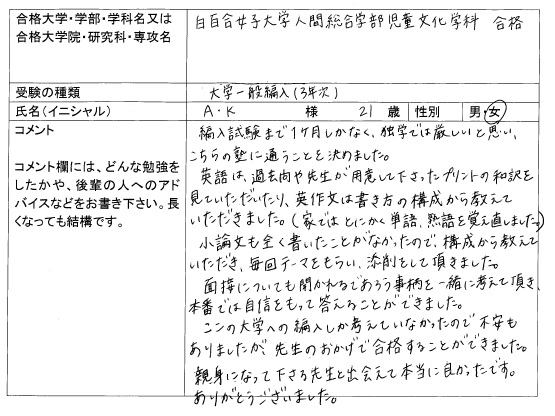 合格大学・学部・学科名又は
合格大学院・研究科・専攻名
白百合女子大学人間総合学部児童文化学科 合格
受験の種類
大学一般編入(3年次)
氏名(イニシャル)
A・K 様 21 歳 性別 男・女
コメント
コメント欄には、どんな勉強を
したかや、後輩の人へのアド
バイスなどをお書き下さい。長
くなっても結構です。
編入試験まで1ヶ月しかなく、独学では厳しいと思い、
こちらの塾に通うことを決めました。
英語は、過去問や先生が用意して下さったプリントの和訳を
見ていただいたり、英作文は書き方の構成から教えて
いただきました。(家ではとにかく単語、熟語を覚え直しました。)
小論文も全く書いたことがなかったので、構成から教えて
いただき、毎回テーマをもらい、添削をして頂きました。
面接についても聞かれるであろう事柄を一緒に考えて頂き、
本番では自信をもって答えることができました。
ここの大学への編入しか考えていなかったので不安も
ありましたが、先生のおかげで合格することができました。
親身になって下さる先生と出会えて本当に良かったです。
ありがとうございました。